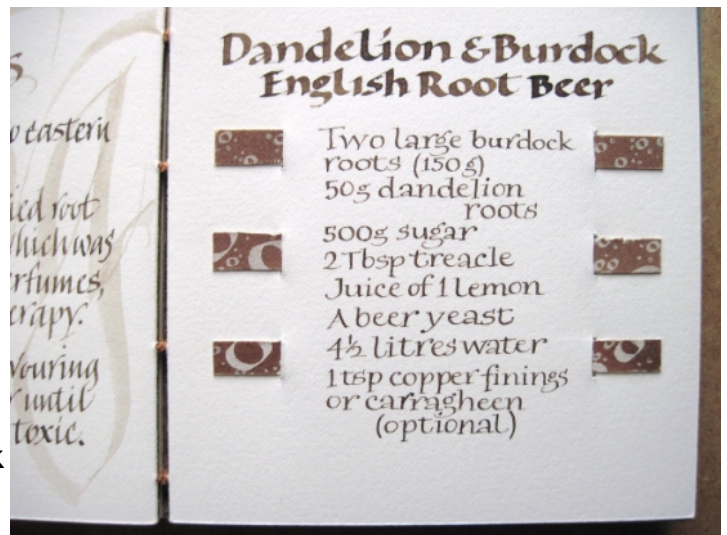 s
o eastern
ied root
which was
rfumes,
erapy.
vouring
until
toxic.
Dandelion & Burdock
English Root Beer
Two large burdock
roots (150g)
50g dandelion
roots
500g sugar
2 Tbsp treacle
Juice of 1 lemon
A beer yeast
4½ litres water
1 tsp copper finings
or carragheen
(optional)